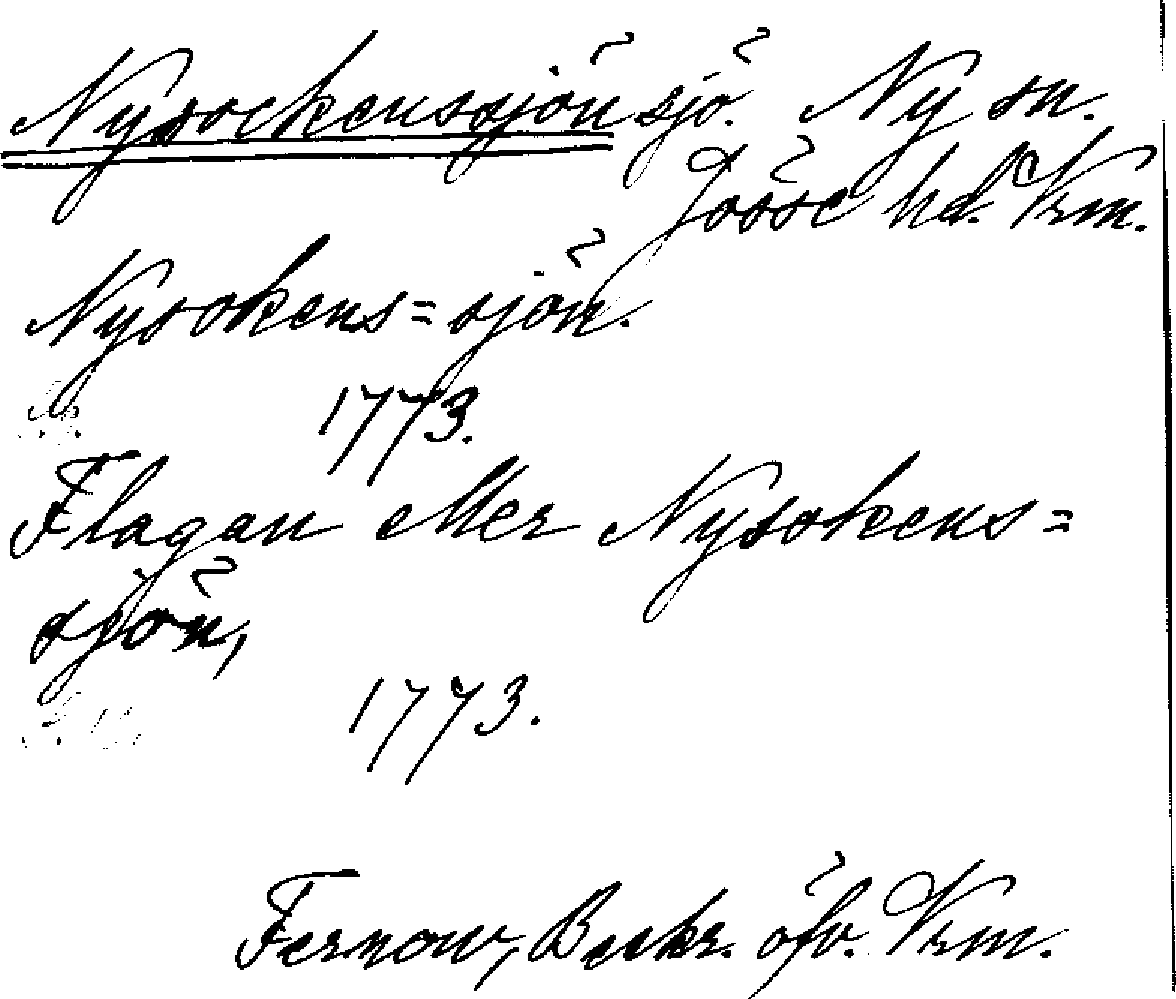 Nysockenssjön sjö. Ny sn.
Jösse hd. Vrm.
Nysokens=sjön.
1773.
Flagan eller Nysokens=
sjön,
1773.
Fernow, Beskr. öfv. Vrm.